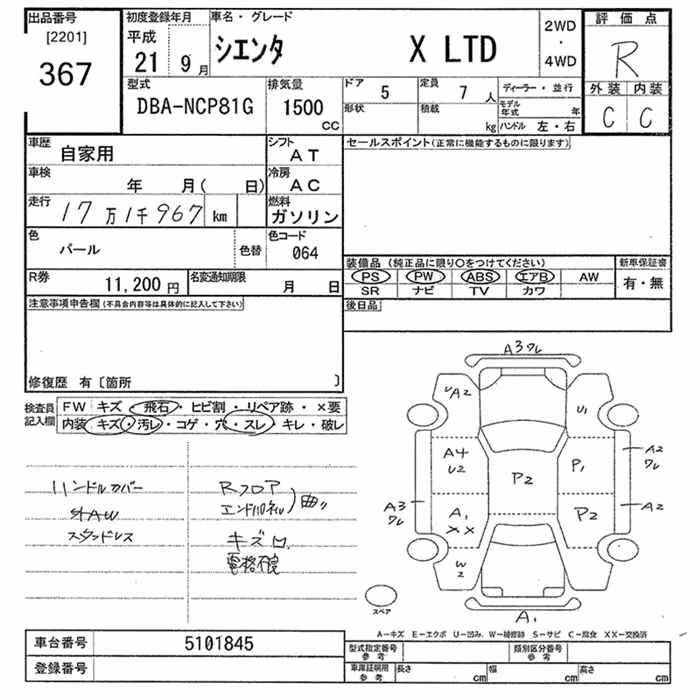 出品番号
[2201]
367
初度登録年月
平成
21 9月
車名・グレード
シエンタ X LTD
2WD
・
4WD
評価点
R
外装 内装
C C
型式
DBA-NCP81G
排気量
1500
CC
ドア
5
定員
7 人
形状
積載
kg
ディーラー・並行
モデル年式 年
ハンドル 左・右
車歴
自家用
シフト
AT
車検
年 月( 日)
冷房
AC
走行
17万1千967 km
燃料
ガソリン
色
パール
色替
色コード
064
R券
11,200 円
名変通知期限
月 日
セールスポイント(正常に機能するものに限ります)
装備品(純正品に限り○をつけてください)
PS PW ABS エアB AW
SR ナビ TV カワ
新車保証書
有・無
後日品
注意事項申告欄(不具合内容等は具体的に記入して下さい)
修復歴 有〔箇所 〕
検査員
記入欄
FW キズ・飛石・ヒビ割・リペア跡・×要
内装 キズ・汚レ・コゲ・穴・スレ・キレ・破レ
ハンドルカバー
社外AW
スタッドレス
Rフロア
エンドパネル
曲り
キズ
A3ワレ
UA2
U1
A4
U2
P1
A2
ワレ
P2
A3
ワレ
A1
XX
P2
A2
W2
A1
スペア
A―キズ E―エクボ U―凹み W―補修跡 S―サビ C―腐食 XX―交換済
車台番号
5101845
登録番号
型式指定番号
参考
類別区分番号
参考
車庫証明用
参考
長さ cm
幅 cm
高さ cm